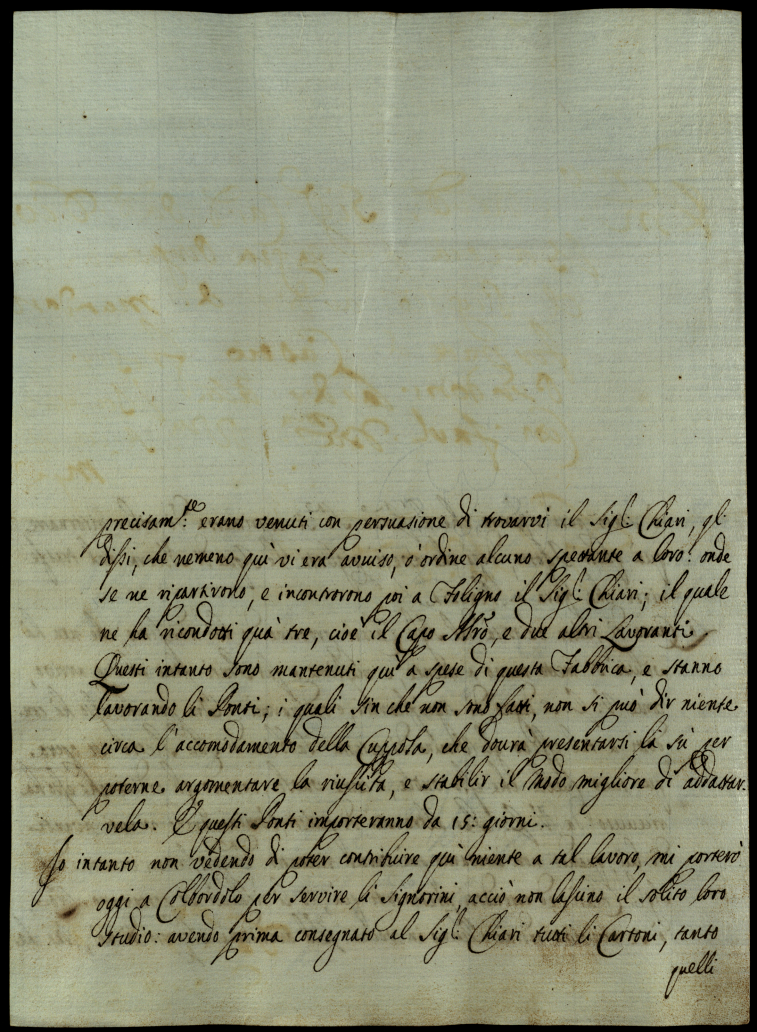 precisam.te erano venuti con persuasione di trovarvi il Sig.r Chiari, gli
dissi, che nemeno quì vi era avviso, ò ordine alcuno spettante a loro: onde
se ne ripartirono, e incontrorono poi a Foligno il Sig.r Chiari; il quale
ne ha ricondotti quà tre, cioè il Capo M̃ro, e due altri Lavoranti.
Questi intanto sono mantenuti quì a spese di questa Fabbrica, e stanno
lavorando li Ponti; i quali sin che non sono fatti, non si può dir niente
circa l'accomodamento della Cuppola, che dourà presentarsi là sù per
poterne argomentare la riuscita, e stabilir il modo migliore di addattar-
vela. E questi Ponti importeranno da 15: giorni.
Io intanto non vedendo di poter contribuire quì niente a tal lavoro, mi porterò
oggi a Colbordolo per servire li Signorini, acciò non lascino il solito loro
studio: avendo prima consegnato al Sig.r Chiari tutti li Cartoni, tanto
quelli